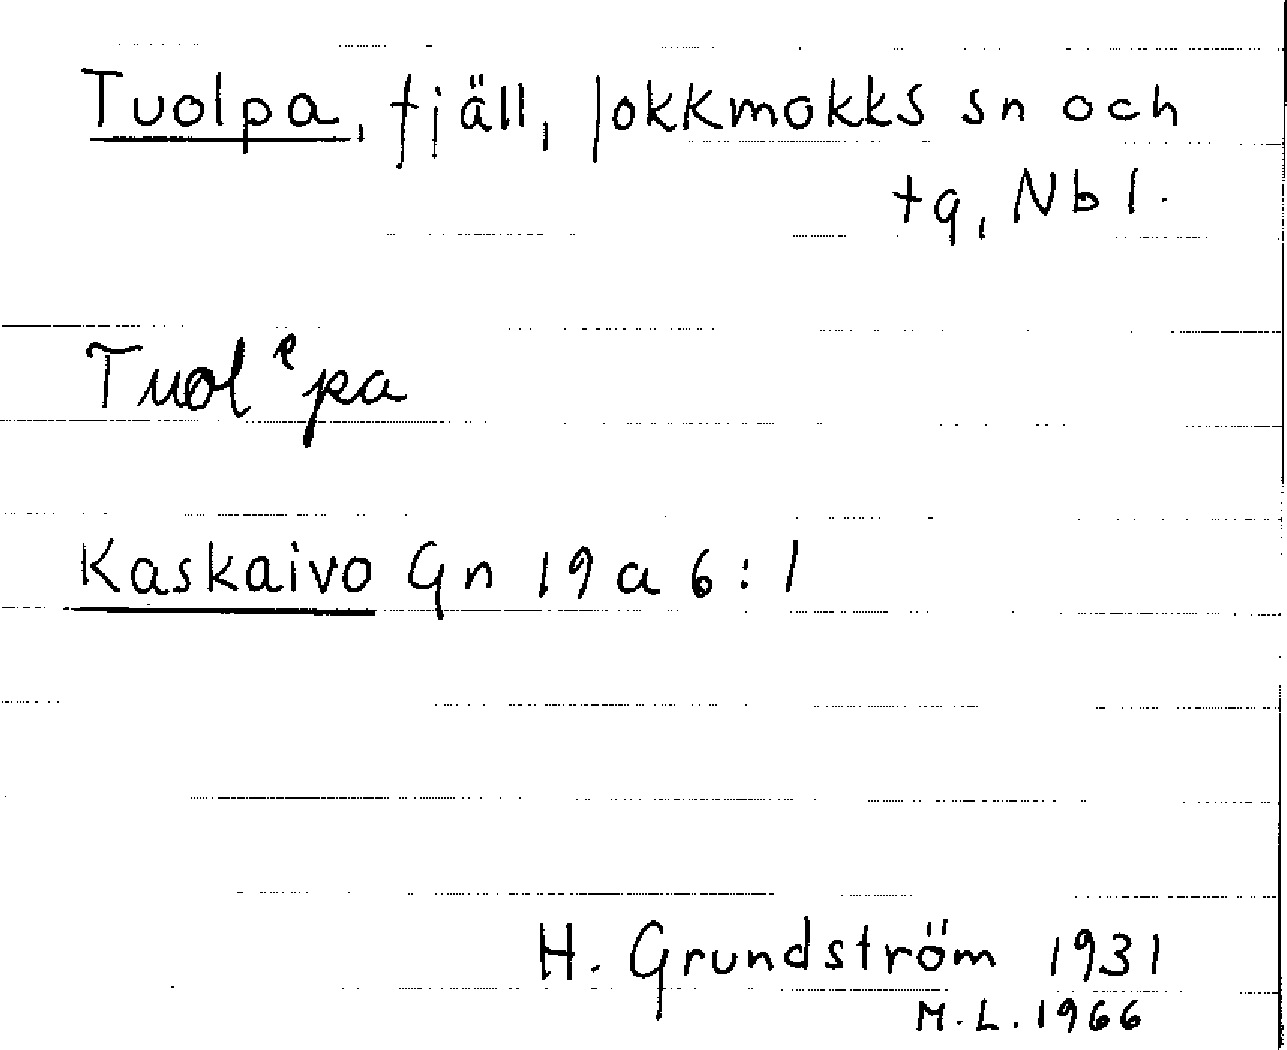 Tuolpa, fjäll, Jokkmokks sn och
tg, Nbl.
Tuolᵉpa
Kaskaivo Gn 19a6:1
H. Grundström 1931
M.L. 1966